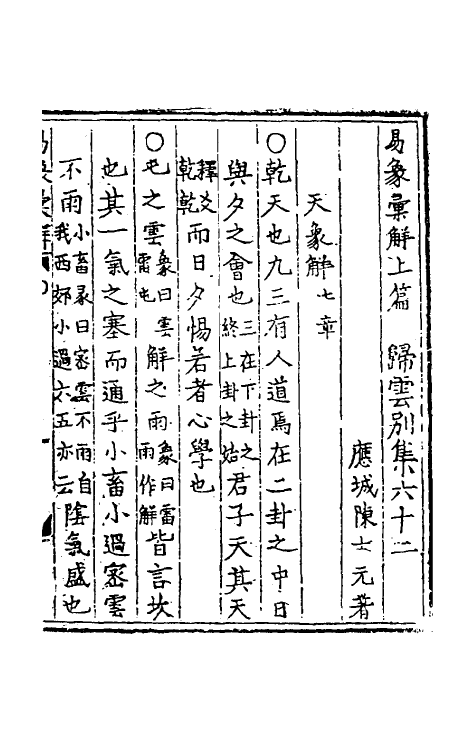 易象彙解上篇　歸雲别集六十二
應城陳士元著
天象解七章
○乾天也九三有人道焉在二卦之中日
與夕之會也三在下卦之終上卦之始君子天其天
釋爻乾乾而日夕惕若者心學也
○屯之雲象曰雲雷屯解之雨象曰雷雨作解皆言坎
也其一氣之塞而通乎小畜小過密雲
不雨小畜彖曰密雲不雨自我西郊小過六五亦云陰氣盛也